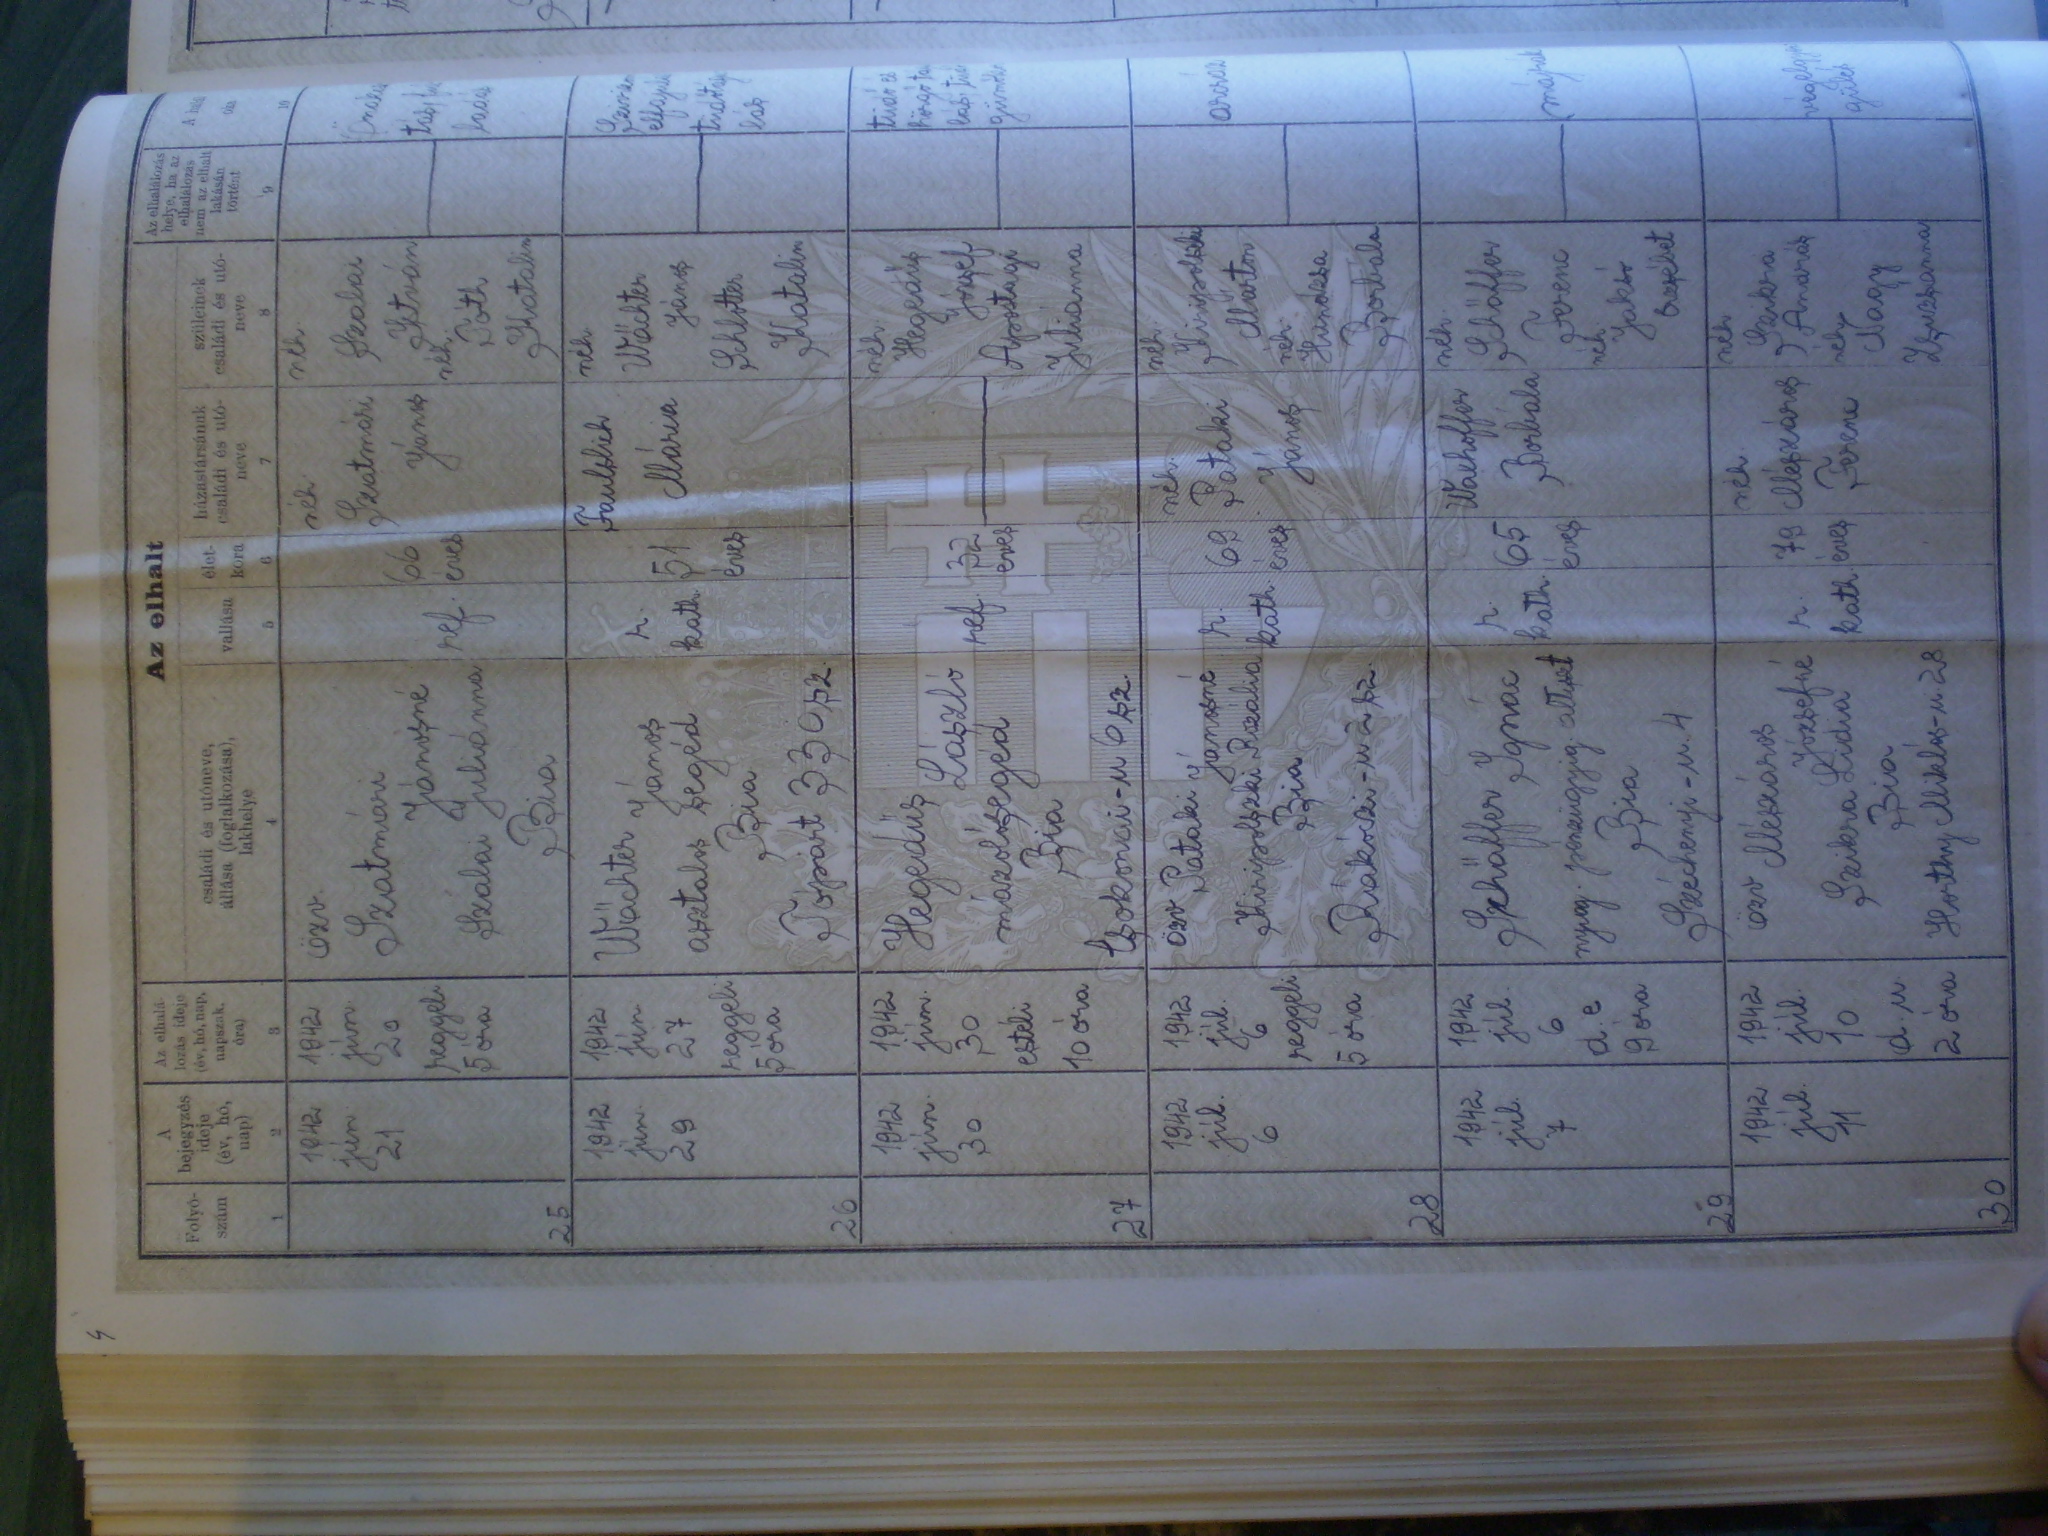 4
Az elhalt
Folyó-
szám
A
bejegyzés
ideje
(év, hó,
nap)
Az elhalá
lozás ideje
(év, hó, nap,
napszak,
óra)
családi és utóneve,
állása (foglalkozása),
lakhelye
vallása
élet-
kora
házastársának
családi és utó-
neve
szüleinek
családi és utó-
neve
Az elhalálozás
helye, ha az
elhalálozás
nem az elhalt
lakásán
történt
A halál
oka
1
2
3
4
5
6
7
8
9
10
25
1942
jún.
21
1942
jún.
20
reggeli
5 óra
özv.
Szatmári
Jánosné
Szalai Juliánna
Bia
ref.
66
éves
néh.
Szatmári
János
néh.
Szalai
István
néh.
Tóth
Katalin
26
1942
jún.
29
1942
jún
27
reggeli
5 óra
Wächter
János
asztalos segéd
Bia
Tópart 339 sz.
r.
kath.
51
éves
Faulstich
Mária
néh.
Wächter
János
Schlotter
Katalin
27
1942
jún.
30
1942
jún.
30
estéli
10 óra
Hegedüs László
mázolósegéd
Bia
Csokonai-u 6 sz.
ref.
32
éves
néh.
Hegedüs
József
Apostagi
Juliánna
28
1942
júl.
6
1942
júl.
6
reggeli
5 óra
özv Pataki Jánosné
Rozália
Bia
Rákóczi-u 2 sz.
r.
kath.
69
éves
néh.
Pataki
János
néh.
Márton
néh.
Borbála
29
1942
júl.
7
1942
júl.
6
d. e
9 óra
Schäffer Ignác
nyug.
Bia
Széchenyi-u. 4
r.
kath.
65
éves
Borbála
néh.
Schäffer
Ferenc
néh.
Jakso
Erzsébet
30
1942
júl.
11
1942
júl.
10
d. u
2 óra
özv Mészáros
Józsefné
Szikora Lidia
Bia
Horthy Miklós-u 28
r.
kath.
79
éves
néh.
Mészáros
Ferenc
néh
Szikora
András
néh
Nagy
Zsuzsanna